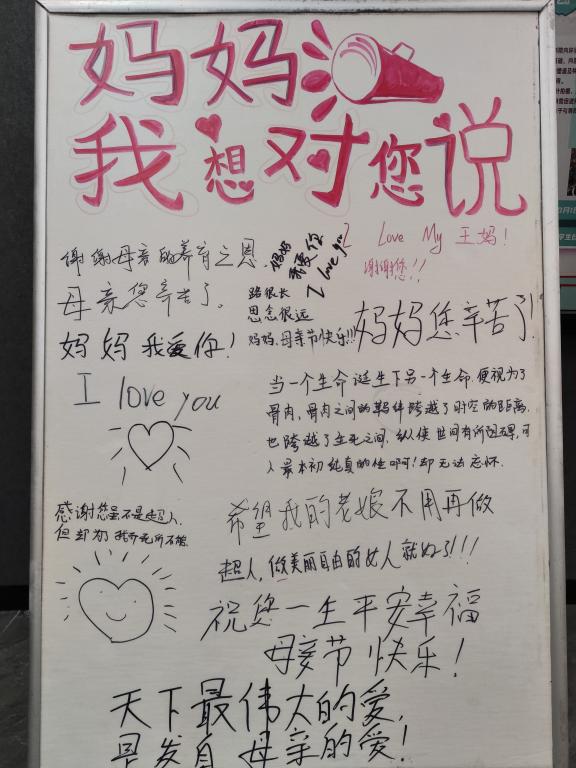 妈妈
我想对您说
I Love My 王妈!
谢谢您!!
谢谢母亲的养育之恩.
妈妈
我爱你
I love you
母亲您辛苦了.
路很长
思念很远
妈妈,母亲节快乐!!!
妈妈您辛苦了!
妈妈我爱你!
I love you
当一个生命诞生下另一个生命,便视为了
骨肉,骨肉之间的羁绊跨越了时空的距离,
也跨越了生死之间,纵使世间有所因果,可
人最本初纯真的性啊!却无法忘怀.
感谢您虽不是超人,
但却为了我无所不能
希望我的老娘不用再做
超人,做美丽自由的女人就好了!!!
祝您一生平安幸福
母亲节快乐!
天下最伟大的爱,
是发自母亲的爱!